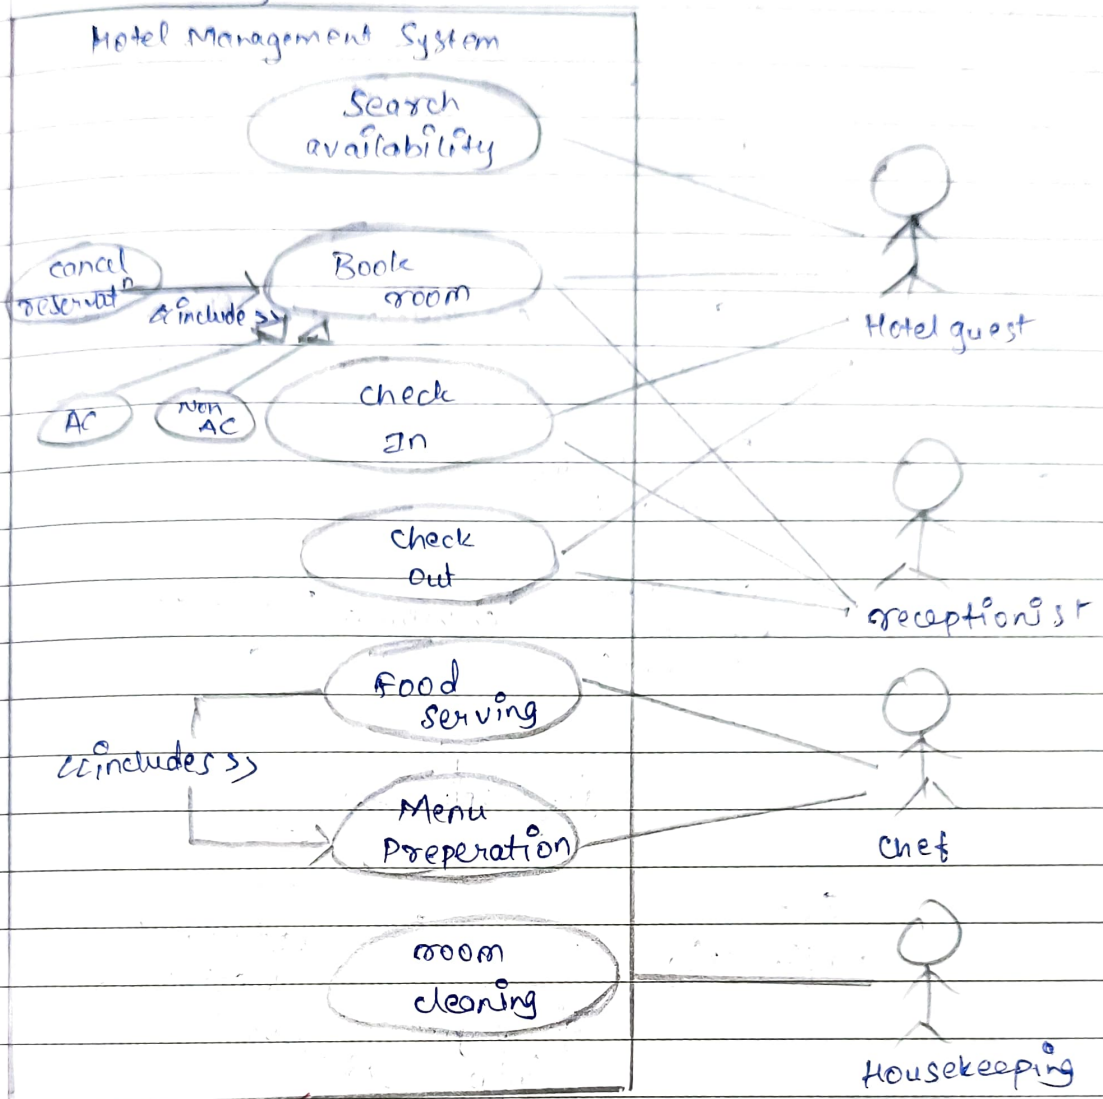 Hotel Management System
Search
availability
Book
room
cancel
reservatn
<<include>>
Hotel guest
AC
Non
AC
check
In
check
out
receptionist
Food
serving
<<includes>>
Menu
Preperation
chef
room
cleaning
Housekeeping